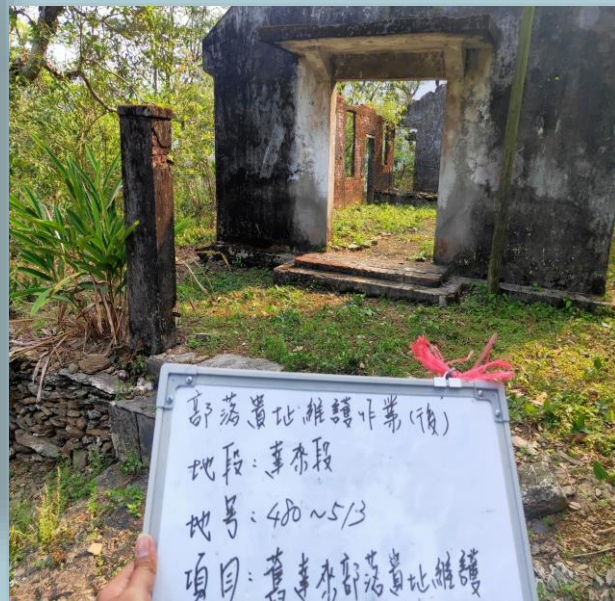 部落遺址維護作業(後)
地段：達來段
地号：480~513
項目：舊達來部落遺址維護